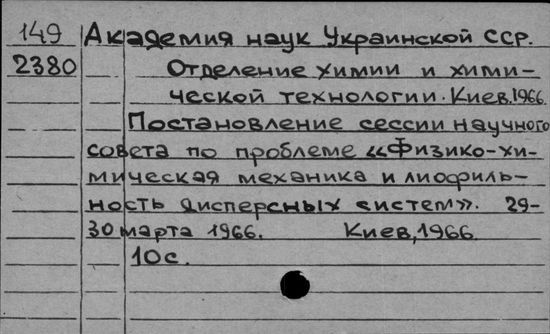 149 Академия наук Украинской ССР.
2380 Отделение химии и хими-
ческой технологии. Киев. 1966.
Постановление сессии научного
совета по проблеме «Физико-хи-
мическая механика и лиофиль-
ность дисперсных систем». 29-
30 марта 1966. Киев, 1966.
10с.